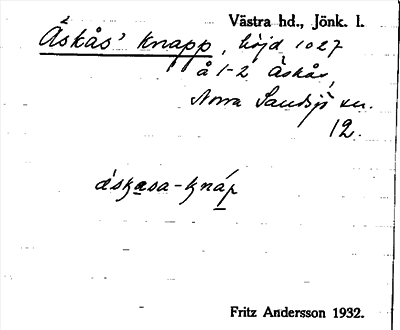 Västra hd., Jönk. l.
Äskås' knapp, höjd 1027
å 1-2 Äskås,
Norra Sandsjö sn.
12.
Fritz Andersson 1932.